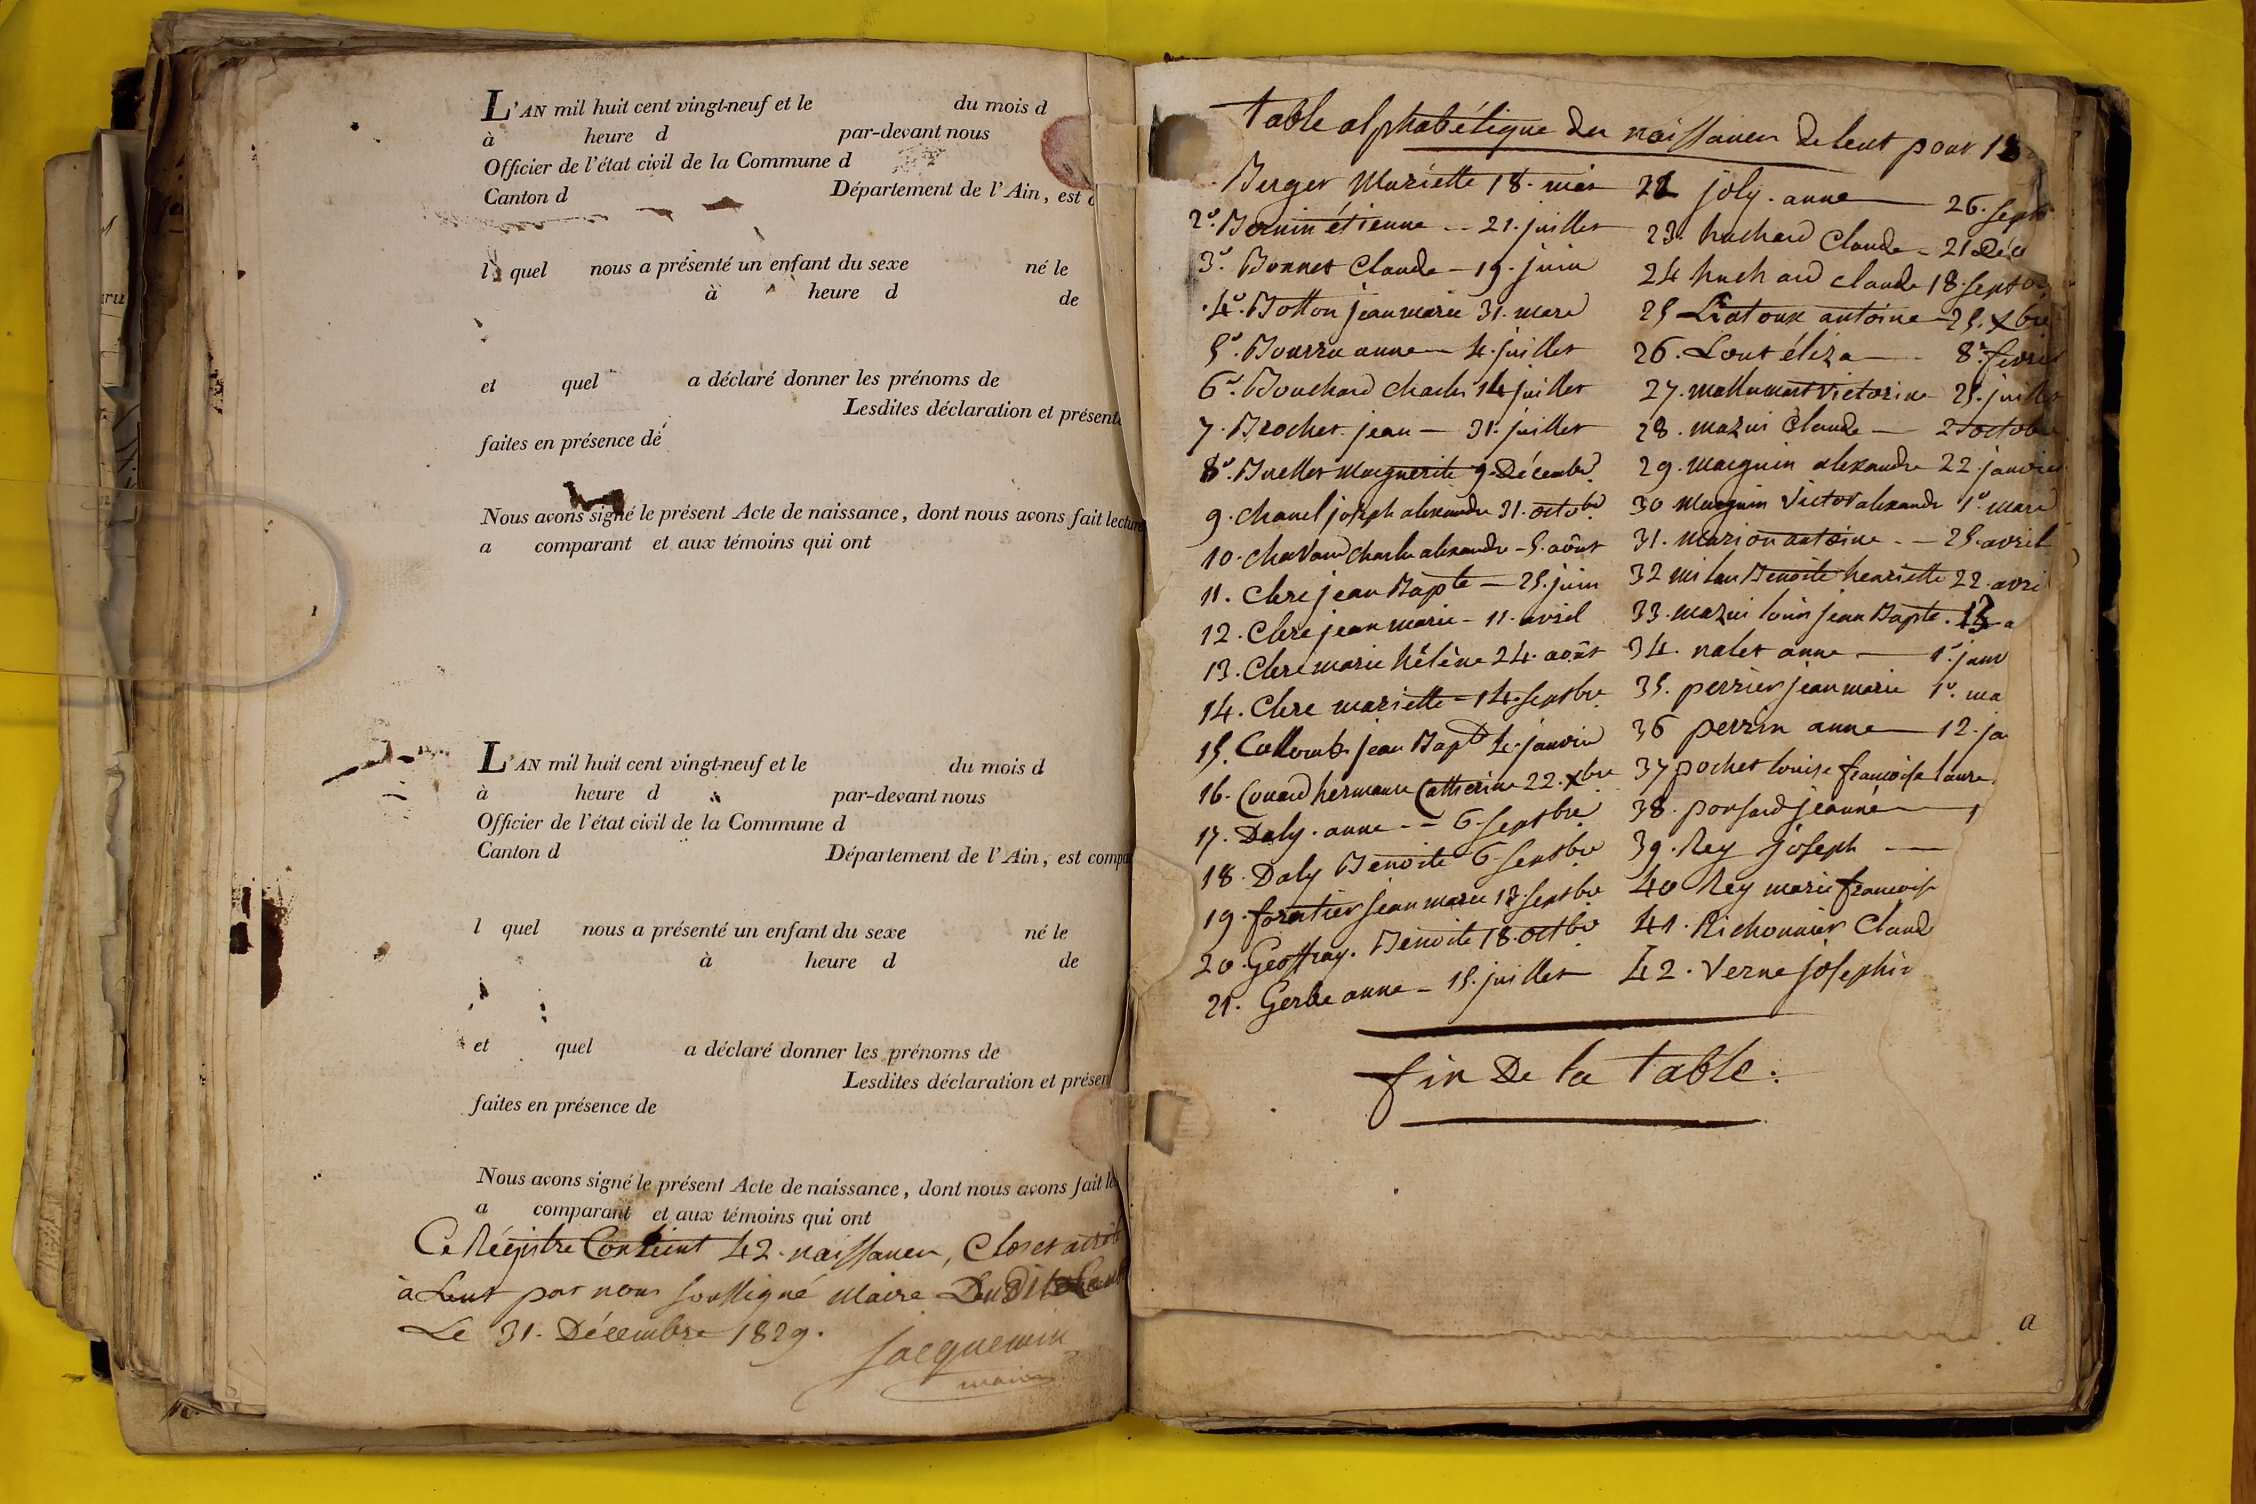 L'AN mil huit cent vingt-neuf et le du mois d
à heure d par-devant nous
Officier de l'état civil de la Commune d
Canton d Département de l'Ain, est
l quel nous a présenté un enfant du sexe né le
à heure d de
et quel a déclaré donner les prénoms de
Lesdites déclaration et présent
faites en présence de
Nous avons signé le présent Acte de naissance, dont nous avons fait lecture
a comparant et aux témoins qui ont
L'AN mil huit cent vingt-neuf et le du mois d
à heure d par-devant nous
Officier de l'état civil de la Commune d
Canton d Département de l'Ain, est compa
l quel nous a présenté un enfant du sexe né le
à heure d de
et quel a déclaré donner les prénoms de
Lesdites déclaration et présen
faites en présence de
Nous avons signé le présent Acte de naissance, dont nous avons fait le
a comparant et aux témoins qui ont
Ce Régistre Contient 42. naissances, Clos et arrêté
à Lent par nous soussigné Maire
Le 31. Décembre 1829.
Jacquemin
maire
table alphabétique des naissances de Lent pour 18
Berger Mariette 18. mars
2° Bernin étienne -- 21. juillet
3° Bonnet Claude - 19. juin
4° Botton jean marie 31. mars
5° Bourru anne - 4. juillet
6° Bouchard Charles 14 juillet
7. Brochet jean - 31. juillet
8° Burellet Marguerite 9. Décembre
9. Chanel joseph alexandre 31. octobre
10. Chavand Charles alexandre - 5. août
11. Clere jean Bapte - 25. juin
12. Clere jean marie - 11. avril
13. Clere marie hélène 24. août
14. Clere mariette - 14. septbre
15. Collomb jean Bapte 4. janvier
16. Couard hermance Catherine 22. Xbre
17. Daly. anne -- 6. septbre
18. Daly Benoite 6. septbre
19. foratier jean marie 13. septbre
20. Geoffray. Benoite 18. octbre
21. Gerbe anne - 15. juillet
22 joly. anne - 26. sept
23. huchard Claude - 21 Déc
24 huchard claude 18. septb
25 Liatoux antoine - 25. Xbre
26. Lout éliza - 8. fevrier
27. victorine - 25. juillet
28. mazui Claude - 2 octobre
29. Marguin alexandre 22. janvier
30 Marguin Victor alexandre 1° mars
31. Marion antoine. - 25. avril
32 milan Benoite henriette 22. avril
33. mazui louis jean Bapte. 13 a
34. nalet anne - 1° janv
35. perrier jean marie 1° ma
36 perrin anne - 12. ja
37 pochet louise francoise laure
38. ponsard jeanne -
39. Rey joseph -
40 Rey marie francoise
41. Richonnier Claud
42. Verne josephin
fin De la table.
a